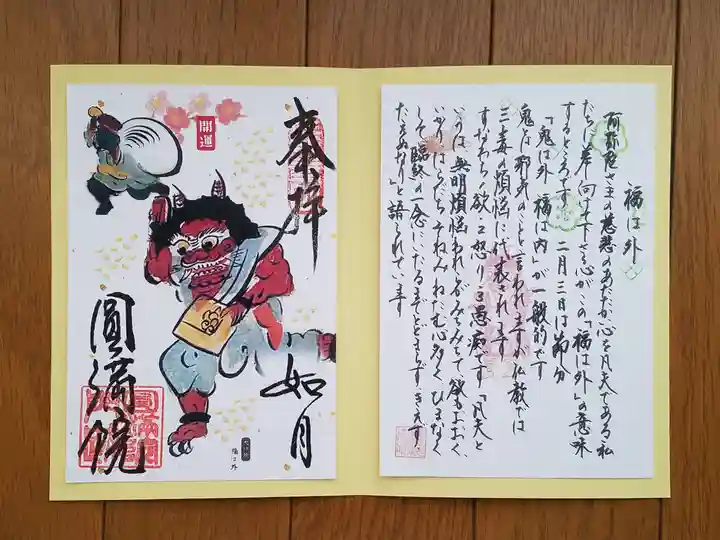 奉拝
開運
如月
圓満院
福は外
福は外
阿弥陀さまの慈悲のあたたか心を凡夫である私
たちに差し向けて下さる心がこの「福は外」の意味
するところです 二月三日は節分
「鬼は外 福は内」が一般的です
鬼は邪気のことと言われますが仏教では
三毒の煩悩に代表されます
すなわち1欲2怒り3愚痴です「凡夫と
いうは無明煩悩われらがみにみちみちて欲もおおく、
いかりはらだちそねみねたむ心多くひまなく
して臨終の一念にいたるまでとどまらずきえず
たえぬなり」と語られています